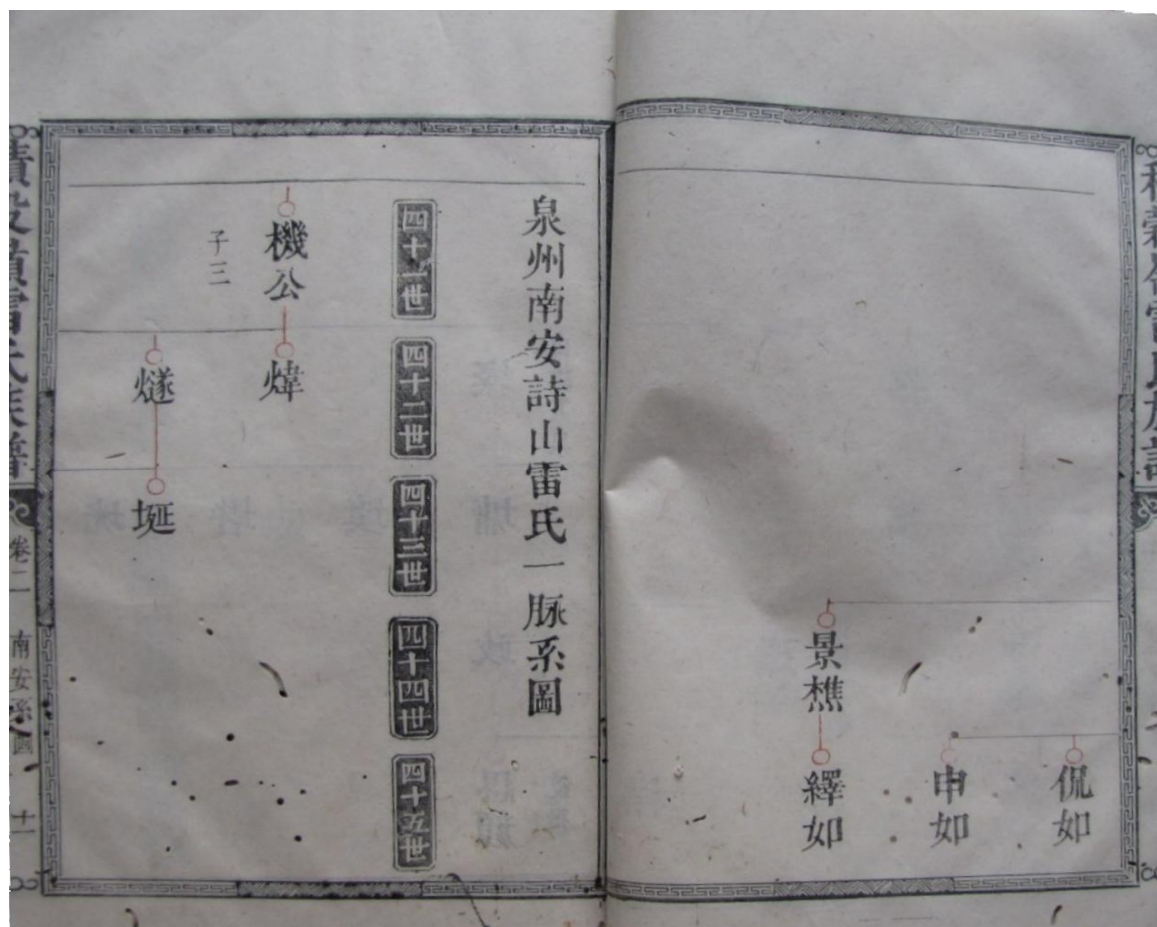 侃如
申如
景樵
繹如
泉州南安詩山雷氏一脉系圖
四十一世
四十二世
四十三世
四十四世
四十五世
機公
子三
煒
燧
埏
雷氏族譜
卷二
南安系圖
十一